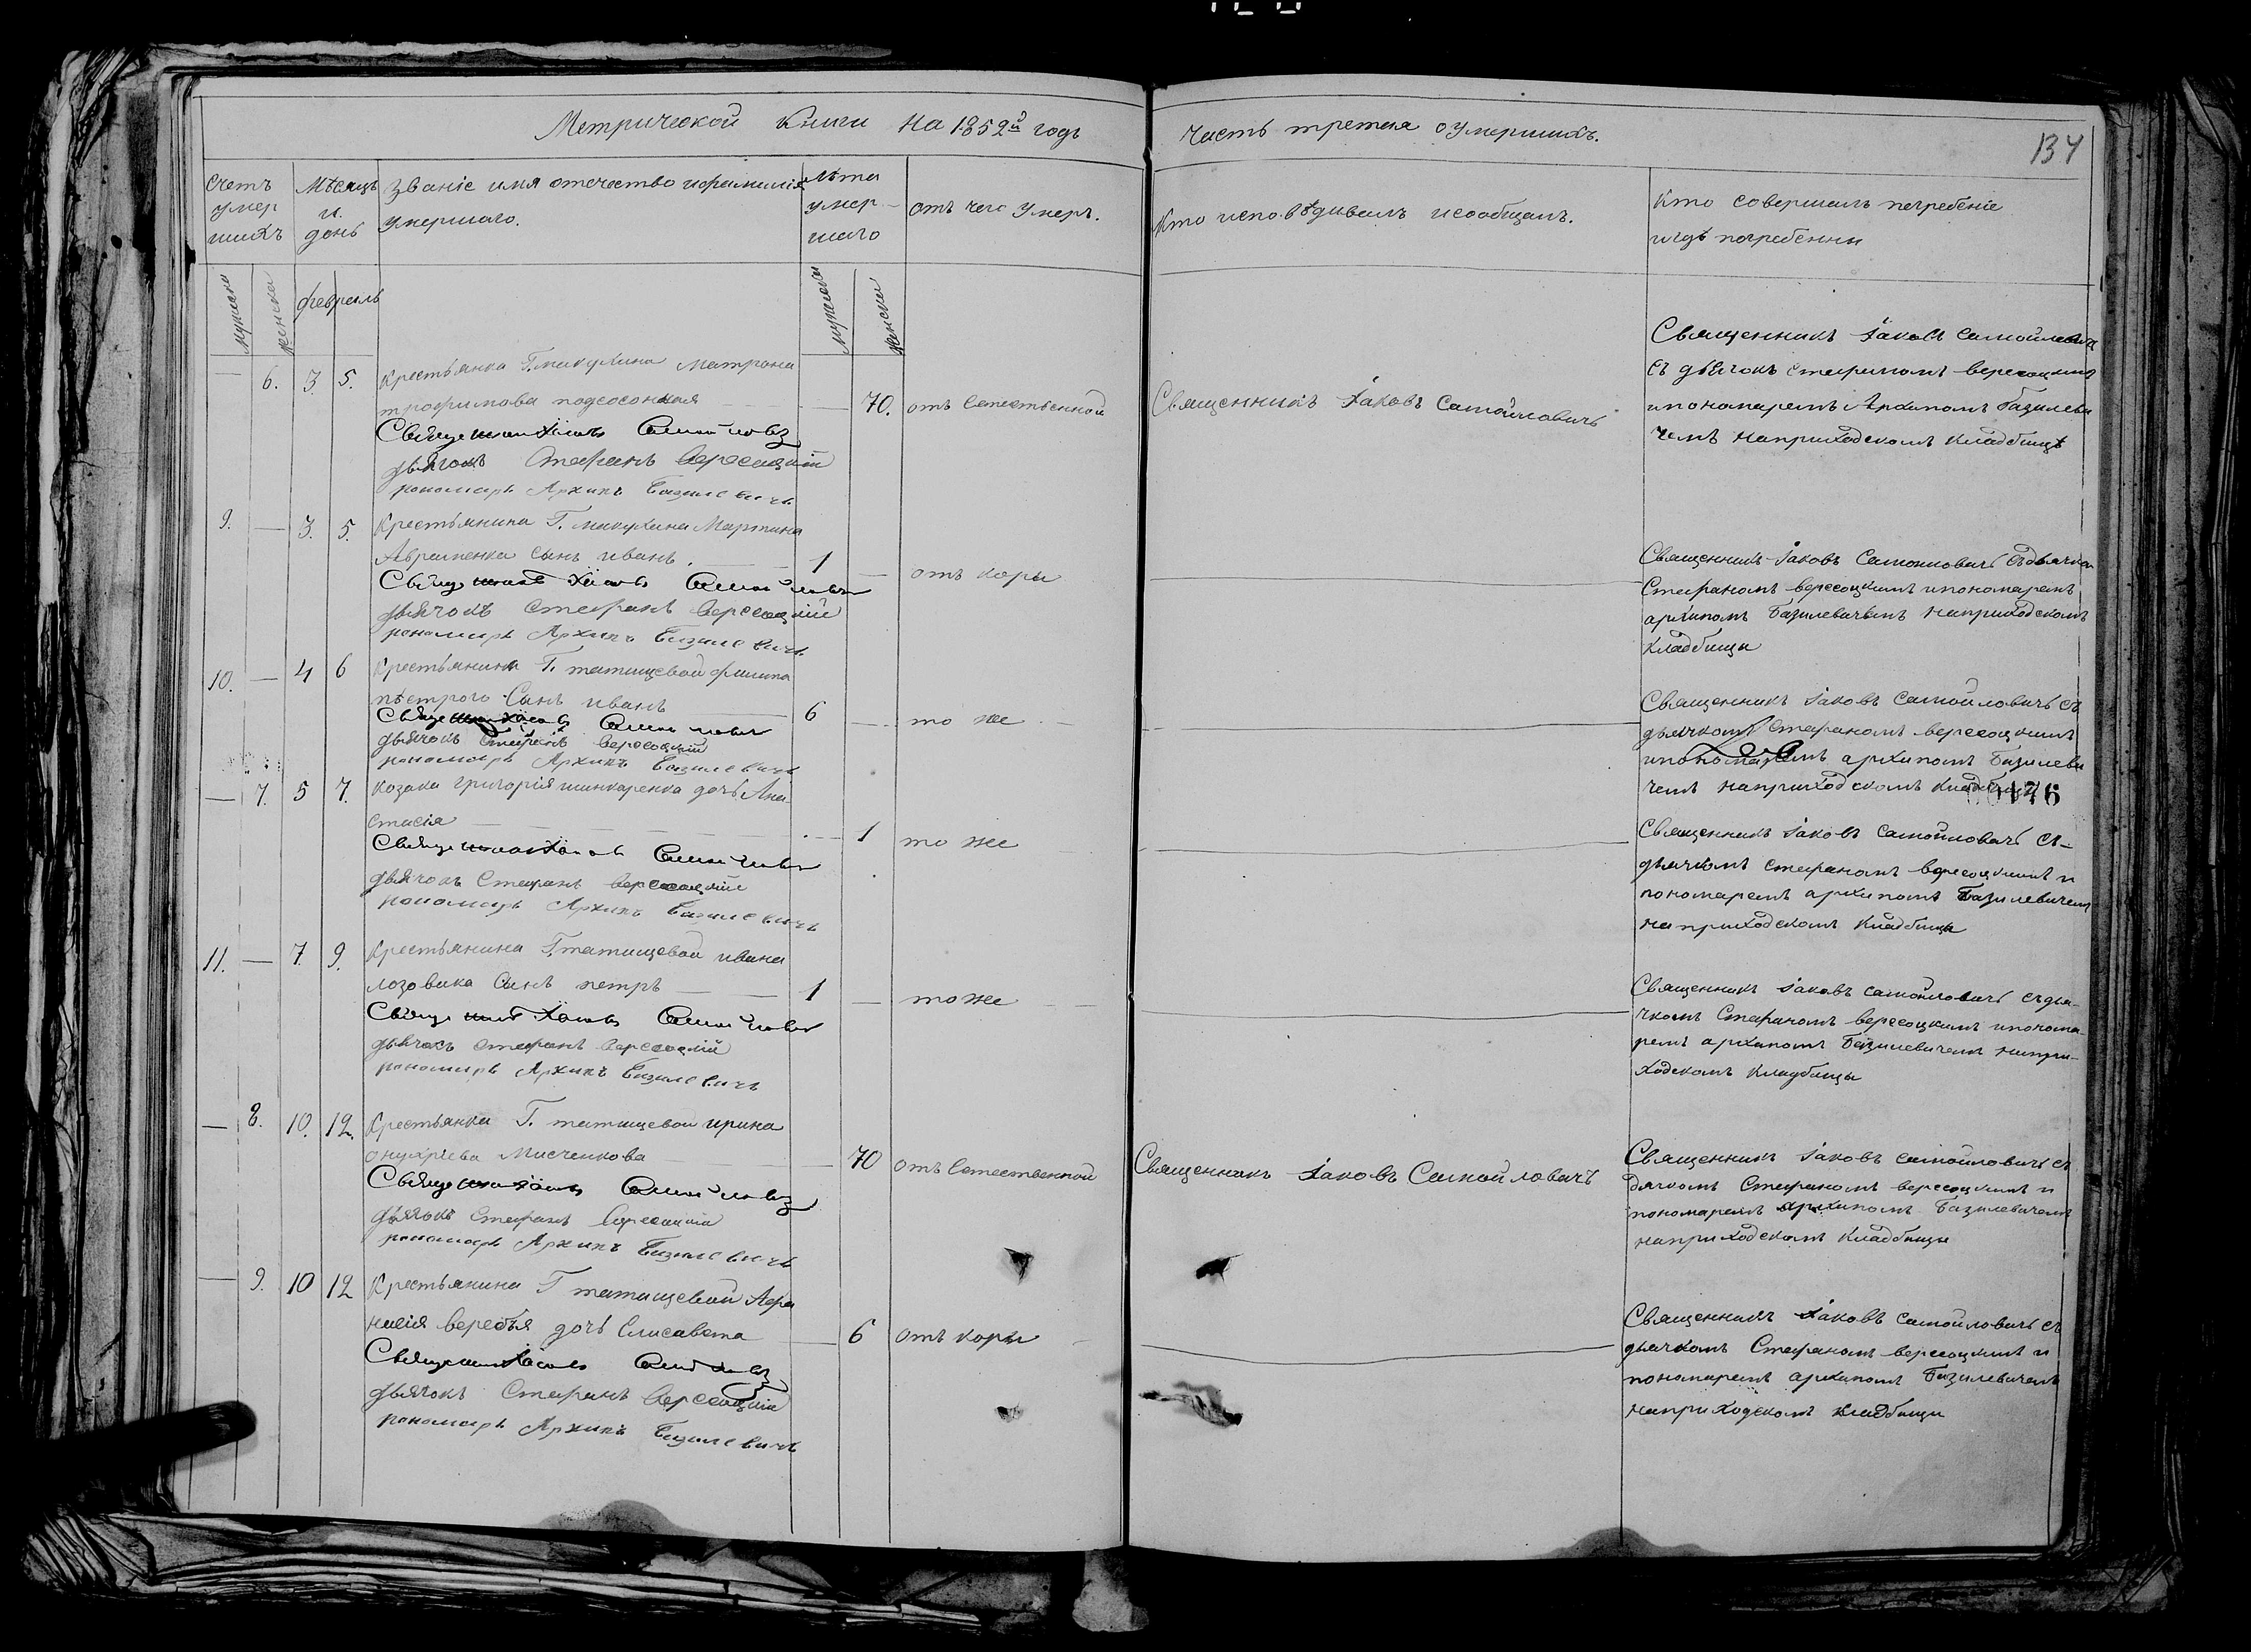 Метрической книги на 1852й годъ
часть третия о умершихъ.
134
счетъ умер шихъ
мѣсяцъ и день
званіе имя отечество и фамилія умершаго.
лѣта умер шаго
отъ чего умеръ.
Кто исповѣдивалъ и сообщалъ.
Кто совершалъ погребеніе
и гдѣ погребенны
мужска
женска
февраль
мужска
женска
6. 3. 5. Крестьянка Г. макухина Матрона
трофимова подсосонная 70. отъ Естественной
Священникъ Іаковъ Самойловичъ
Священникъ Іаковъ Самойловичъ
съ дьячокъ стефаномъ вересоцкимъ
и пономаремъ Архипомъ базилеви
чемъ наприходскомъ кладбищѣ
Священникъ Іаковъ Самойловичъ
дьячокъ Стефанъ Вересоцкій
пономарь Архипъ Базилевичъ
9. — 3. 5. Крестьянина Г. макухина Мартина
Авраменка сынъ иванъ. 1 — отъ коры
Священникъ Іаковъ Самойловичъ
дьячокъ стефанъ Вересоцкій
пономарь Архипъ Базилевичъ
Священникъ Іаковъ Самойловичъ съ дьячком
Стефаномъ вересоцкимъ и пономаремъ
архипомъ Базилевичемъ наприходскомъ
кладбищи
10. — 4 6 Крестьянина Г. татищевой филипа
пѣстрого Сынъ иванъ 6 — то же
Священникъ Іаковъ Самойловичъ
дьячокъ Стефанъ Вересоцкій
пономарь Архипъ Базилевичъ
Священникъ Іаковъ Самойловичъ съ
дьячкомъ Стефаномъ вересоцкимъ
и пономаремъ архипомъ Базилеви
чемъ наприходскомъ кладбищи
00176
— 7. 5 7. Козака григорія шинкаренка дочь Ана
стасія — 1 то же
Священникъ Іаковъ Самойловичъ
дьячокъ Стефанъ Вересоцкій
пономарь Архипъ Базилевичъ
Священникъ Іаковъ Самойловичъ съ
дьячкомъ стефаномъ вересоцкимъ и
пономаремъ архипомъ Базилевичемъ
наприходскомъ кладбищи
11. — 7. 9. Крестьянина Г татищевой ивана
лозовика сынъ петръ 1 — тоже
Священникъ Іаковъ Самойловичъ
дьячокъ стефанъ Вересоцкій
пономарь Архипъ Базилевичъ
Священникъ Іаковъ самойловичъ съ дья-
чкомъ Стефаномъ вересоцкимъ и понома
ремъ архипомъ Базилевичемъ напри-
ходскомъ кладбищы
— 8. 10. 12. Крестьянка Г. татищевой ирина
онуфріева Мисченкова 70 отъ Естественной
Священникъ Іаковъ Самойловичъ
Священникъ Іаковъ Самойловичъ
дьячокъ Стефанъ Вересоцкій
пономарь Архипъ Базилевичъ
Священникъ Іаковъ самойловичъ съ
дячкомъ Стефаномъ вересоцкимъ и
пономаремъ архипомъ Базилевичемъ
наприходскомъ кладбищы
— 9. 10 12 Крестьянина Г татищевой Афа
насія веребья дочь Елисавета 6 отъ коры
Священникъ Іаковъ Самойловичъ
дьячокъ Стефанъ Вересоцкій
пономарь Архипъ Базилевичъ
Священникъ Іаковъ самойловичъ съ
дьячкомъ Стефаномъ вересоцкимъ и
пономаремъ архипомъ Базилевичемъ
наприходскомъ кладбищи